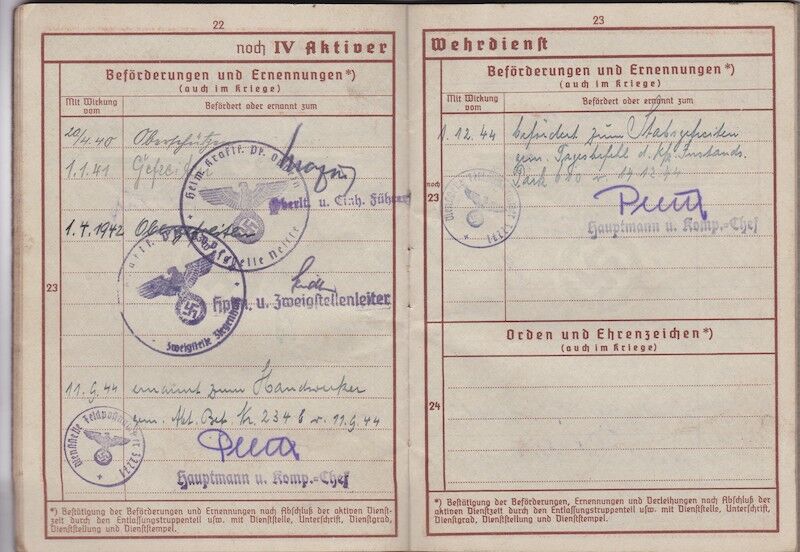 22
noch IV Aktiver
Beförderungen und Ernennungen*)
(auch im Kriege)
Mit Wirkung vom
Befördert oder ernannt zum
20/4.40 Oberschütze
1.1.41 Gefreiter
Oberlt. u. Einh. Führer
1.4.1942 Obergefreiten
23
Hptm. u. Zweigstellenleiter
Zweigstelle
11.9.44 ernannt zum Handwerker
gem. Abt. Bef. Nr. 234 6 v. 11.9.44
Dienststelle Feldpostnummer 32731
Hauptmann u. Komp.-Chef
*) Bestätigung der Beförderungen und Ernennungen nach Abschluß der aktiven Dienst-
zeit durch den Entlassungstruppenteil usw. mit Dienststelle, Unterschrift, Dienstgrad,
Dienststellung und Dienststempel.
23
Wehrdienst
Beförderungen und Ernennungen*)
(auch im Kriege)
Mit Wirkung vom
Befördert oder ernannt zum
1.12.44 befördert zum Stabsgefreiten
gem. Tagesbefehl d. Kf. Instands.
Park
noch 23
Hauptmann u. Komp.-Chef
Orden und Ehrenzeichen*)
(auch im Kriege)
24
*) Bestätigung der Beförderungen, Ernennungen und Verleihungen nach Abschluß der
aktiven Dienstzeit durch den Entlassungstruppenteil usw. mit Dienststelle, Unterschrift,
Dienstgrad, Dienststellung und Dienststempel.